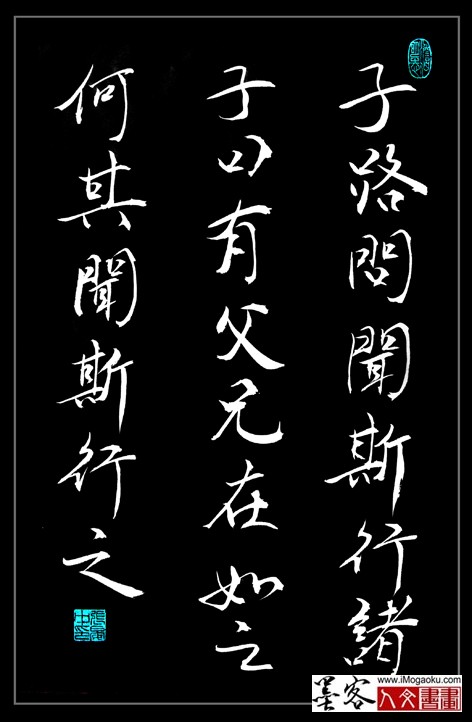 子路問聞斯行諸
子曰有父兄在如之
何其聞斯行之
www.iMogaoku.com
墨客
人文書畫